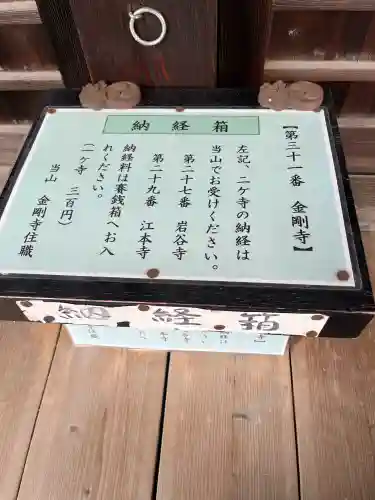 納経箱
【第三十一番 金剛寺】
左記、二ケ寺の納経は
当山でお受けください。
第二十七番 岩谷寺
第二十九番 江本寺
納経料は賽銭箱へお入
れください。
(一ケ寺 三百円)
当山 金剛寺住職
納経箱